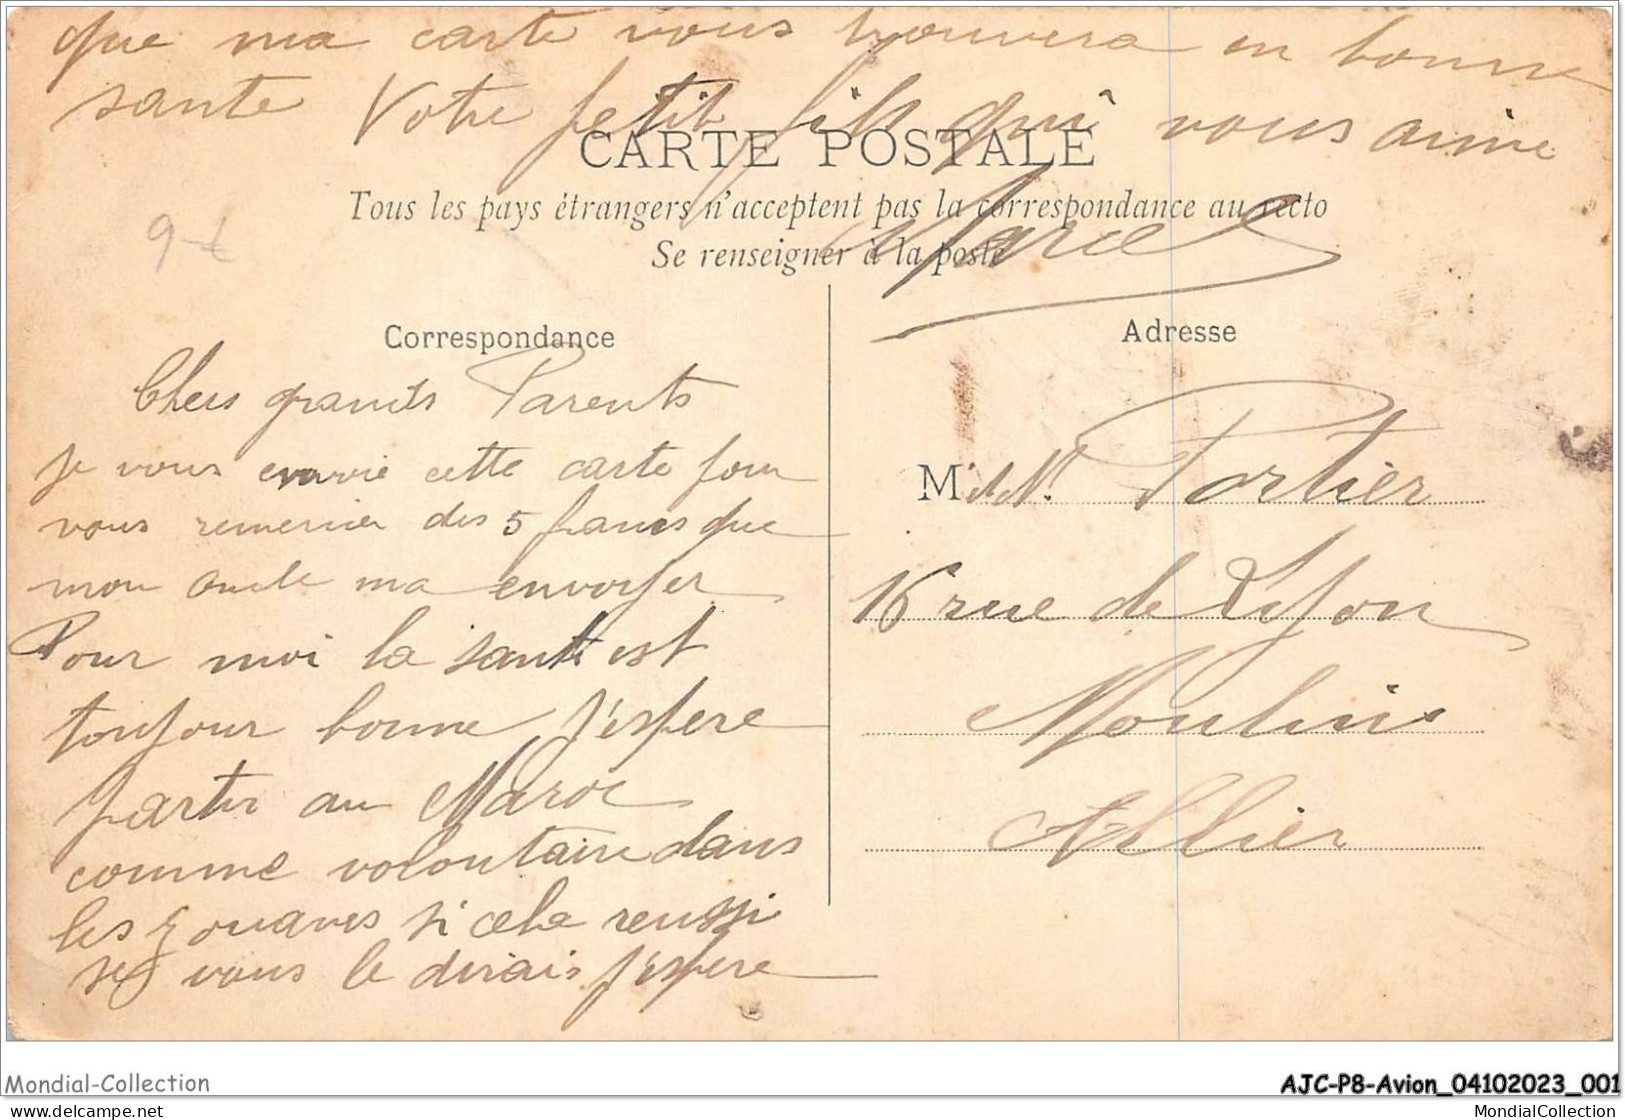 que ma carte vous trouvera en bonne
sante Votre petit fils qui vous aime
CARTE POSTALE
Tous les pays étrangers n'acceptent pas la correspondance au recto
Marcel
Se renseigner à la poste
9 €
Correspondance
Chers grands Parents
je vous envoie cette carte pour
vous remercier des 5 francs que
mon oncle ma envoyer
Pour moi la santé est
toujour bonne J'espere
partir au Maroc
comme volontaire dans
les zouaves si cela reussi
je vous le dirais J'espere
Adresse
M Portier
16 rue de Lyon
Moulins
Allier
Mondial-Collection
AJC-P8-Avion_04102023_001
www.delcampe.net
MondialCollection